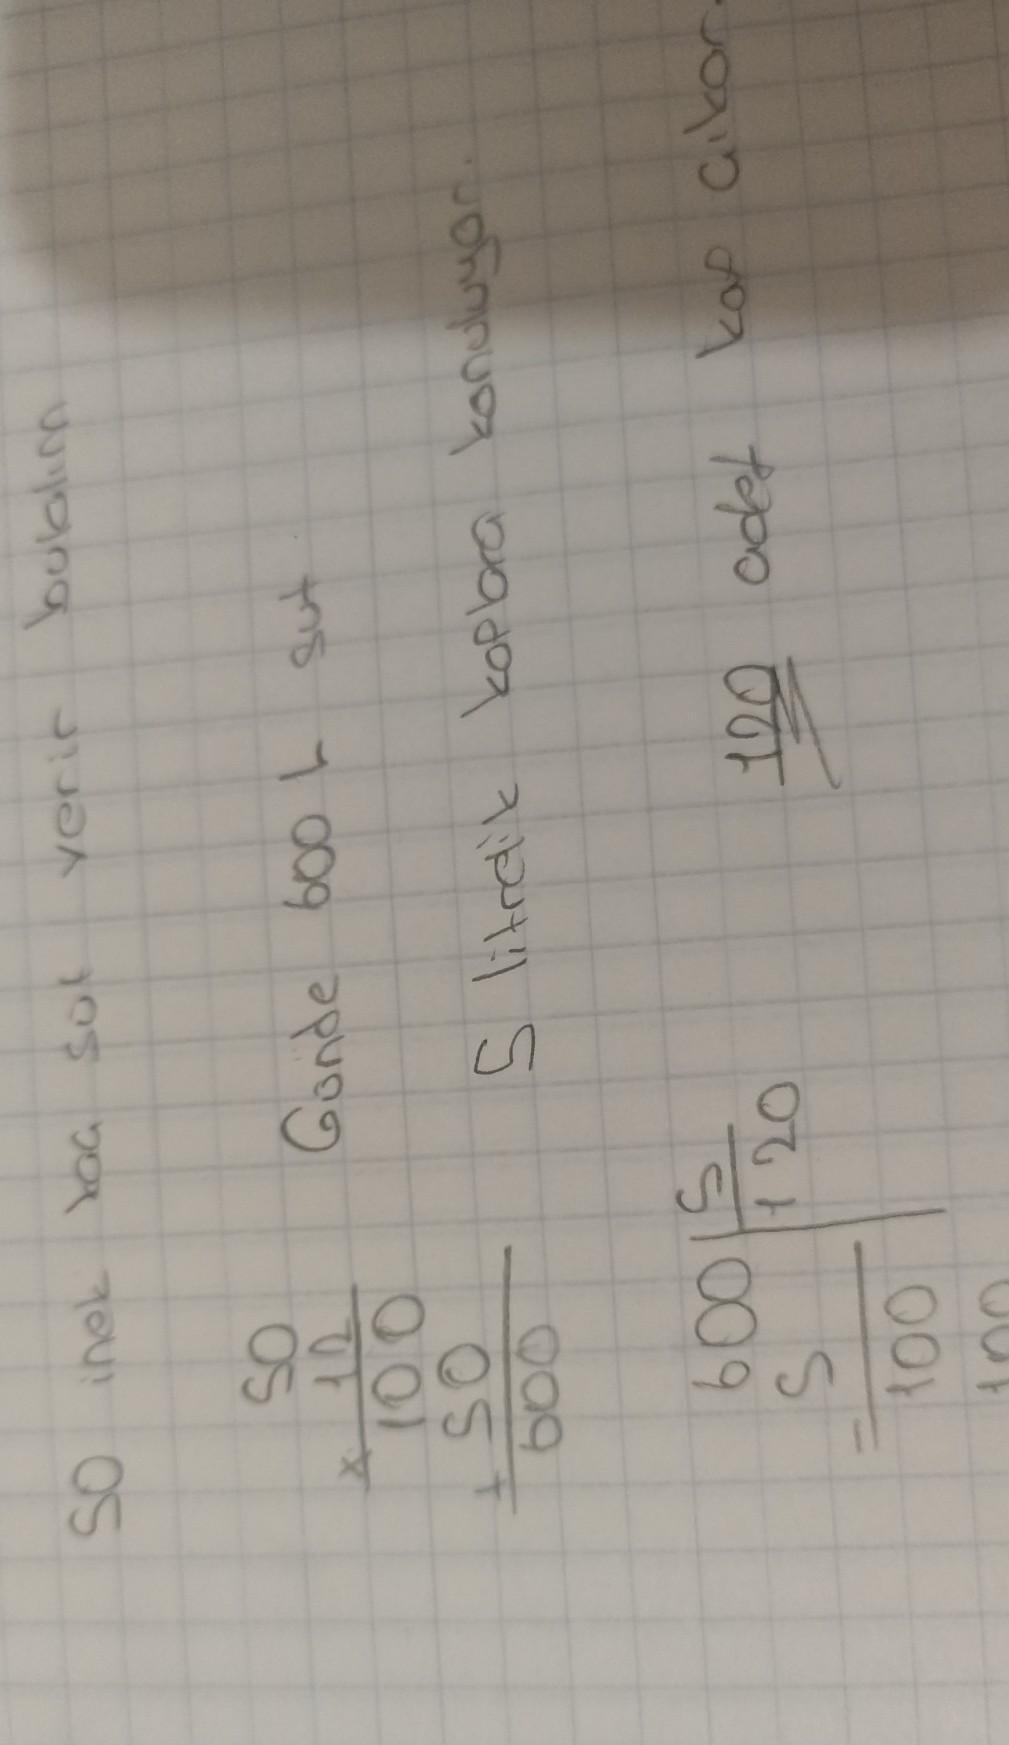 50 inek kaç süt verir bulalım
50
x 12
100
+ 50
600
Günde 600 L süt
5 litrelik kaplara konuluyor.
600 | 5
5 | 120
= 100
100
120 adet kap çıkar.